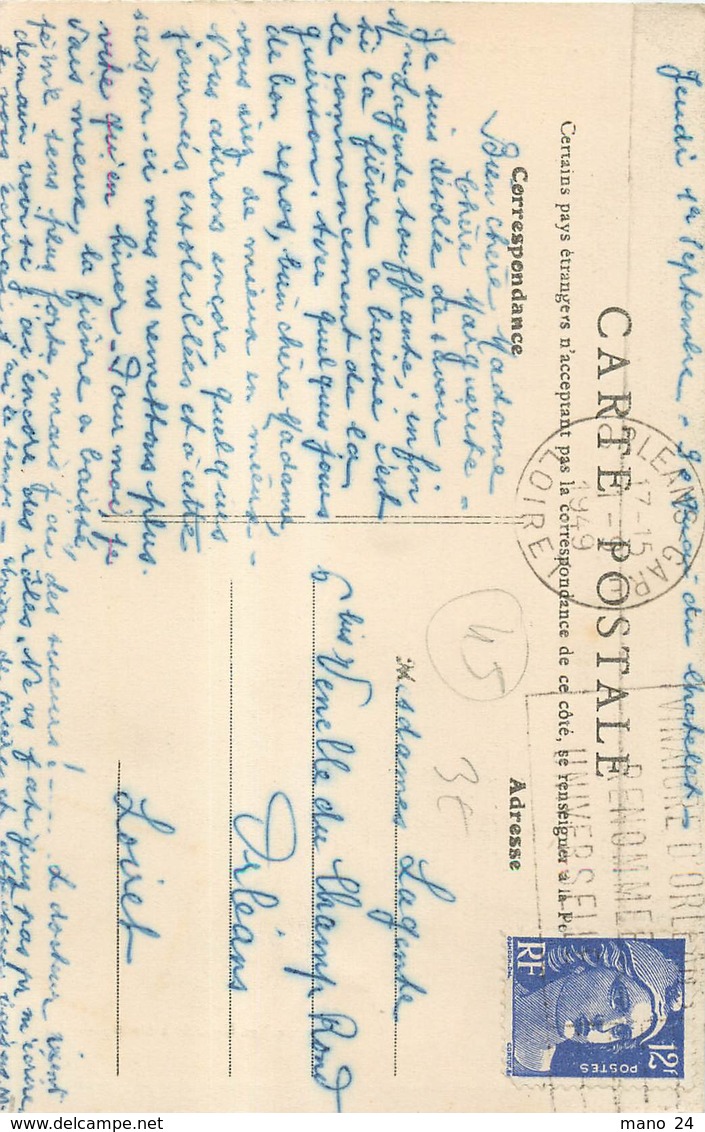 Jeudi 1er Septembre - 9 du Chatelet -
CARTE POSTALE
Certains pays étrangers n'acceptant pas la correspondance de ce côté, se renseigner à la Po
Correspondance
Adresse
ORLEANS GARE
17-15
1949
LOIRET
VINAIGRE D'ORLEANS
RENOMMEE
UNIVERSELLE
RF
12f
POSTES
45
3€
Bien chère Madame
Chère Marguerite -
Je suis désolée de savoir
Mme Lagente souffrante; enfin
si la fièvre a baissé c'est
le commencement de la
guérison. Avec quelques jours
de bon repos, bien chère Madame,
vous irez de mieux en mieux -
Nous aurons encore quelques
journées ensoleillées et à cette
saison-ci nous nous remettons plus
vite qu'en hiver - Pour moi, je
vais mieux, la fièvre a baissé,
je me sens plus forte, mais j'ai des sueurs! .... Le docteur vient
demain voir si j'ai encore des râles. Ne vous fatiguez pas pr m'écrire,
Mesdames Lagente
6 bis Venelle du Champ Rond
Orléans
Loiret
mano 24